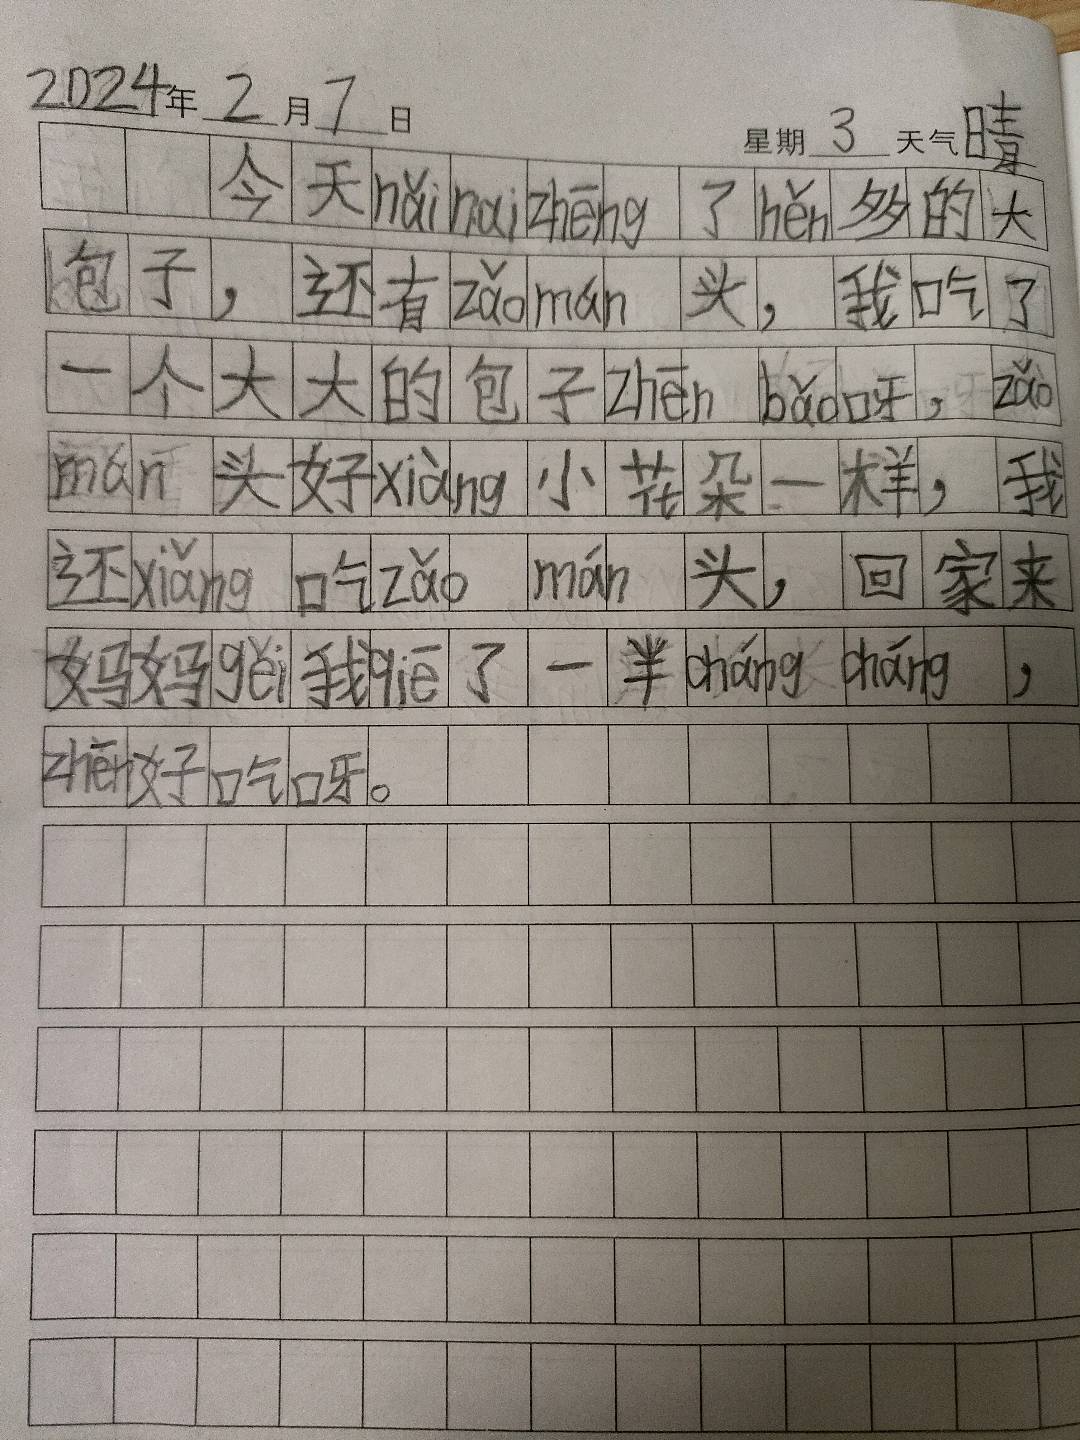 2024年 2 月 7 日 星期 3 天气 晴
今天nǎinaizhēng了hěn多的大
包子，还有zǎomán头，我吃了
一个大大的包子zhēn bǎo呀，zǎo
mán头好xiàng小花朵一样，我
还xiǎng吃zǎo mán头，回家来
妈妈gěi我qiē了一半cháng cháng，
zhēn好吃呀。